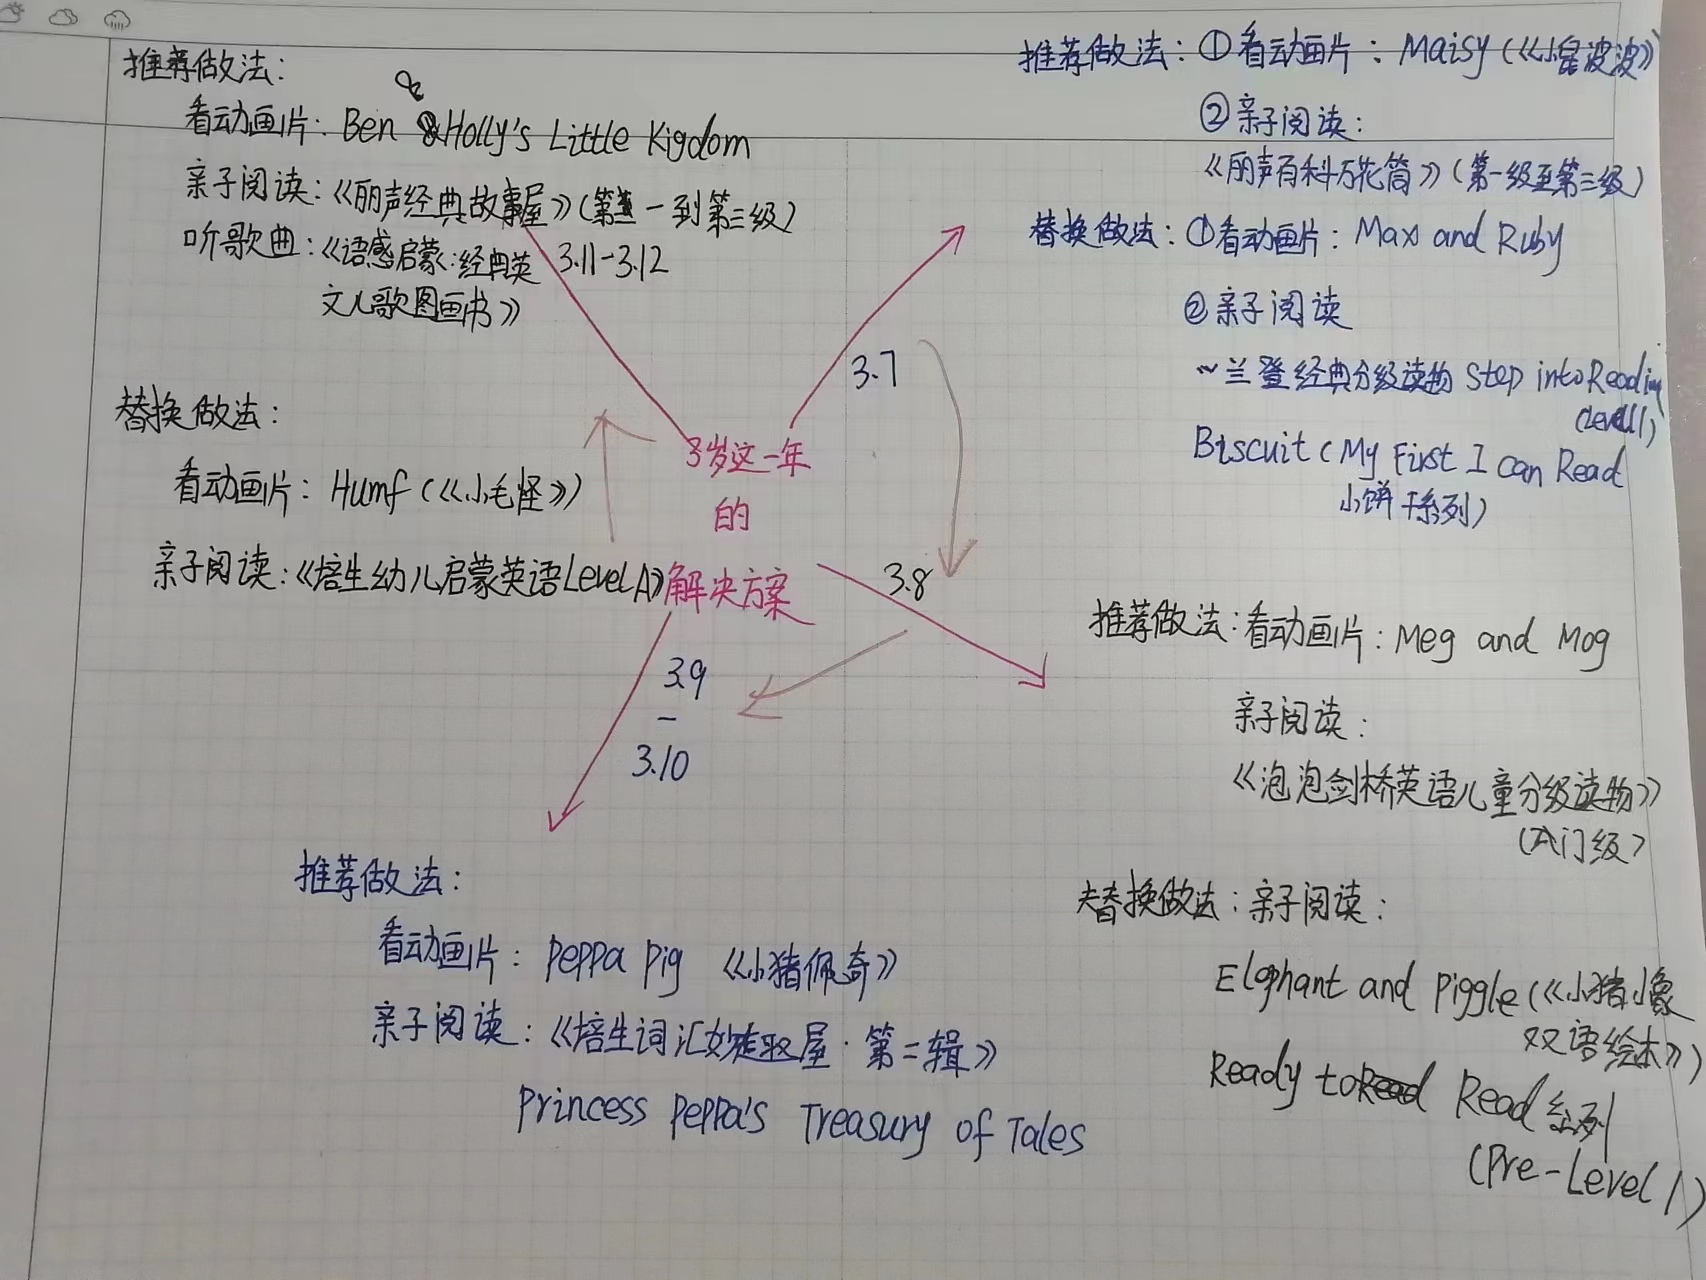 3岁这一年
的
解决方案
3.7
推荐做法：①看动画片：Maisy（《小鼠波波》
②亲子阅读：
《丽声百科万花筒》（第一级至第三级）
替换做法：①看动画片：Max and Ruby
②亲子阅读
~兰登经典分级读物 Step into Reading
(Level 1)
Biscuit（My First I can Read
小饼干系列）
3.8
推荐做法：看动画片：Meg and Mog
亲子阅读：
《泡泡剑桥英语儿童分级读物》
（入门级）
替换做法：亲子阅读：
Elephant and Piggle（《小猪小象
双语绘本》）
Ready to Read 系列
（Pre-Level 1）
3.9
-
3.10
推荐做法：
看动画片：Peppa Pig 《小猪佩奇》
亲子阅读：《培生词汇妙趣屋·第二辑》
Princess Peppa's Treasury of Tales
3.11-3.12
推荐做法：
看动画片：Ben & Holly's Little Kigdom
亲子阅读：《丽声经典故事屋》（第一到第三级）
听歌曲：《语感启蒙：经典英
文儿歌图画书》
替换做法：
看动画片：Humf（《小毛怪》）
亲子阅读：《培生幼儿启蒙英语Level A》